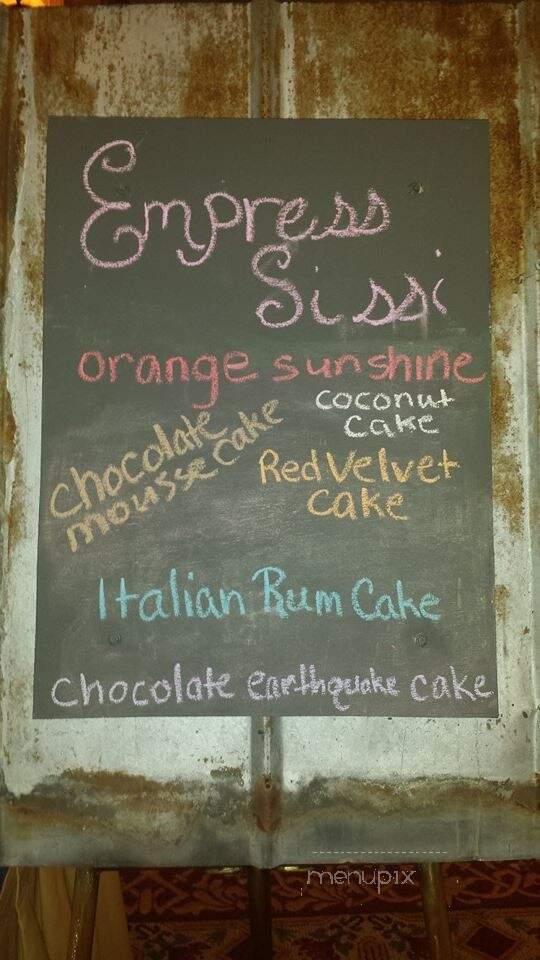 Empress
Sissi
orange sunshine
coconut
cake
chocolate
mousse cake
Red Velvet
cake
Italian Rum Cake
chocolate earthquake cake
menupix